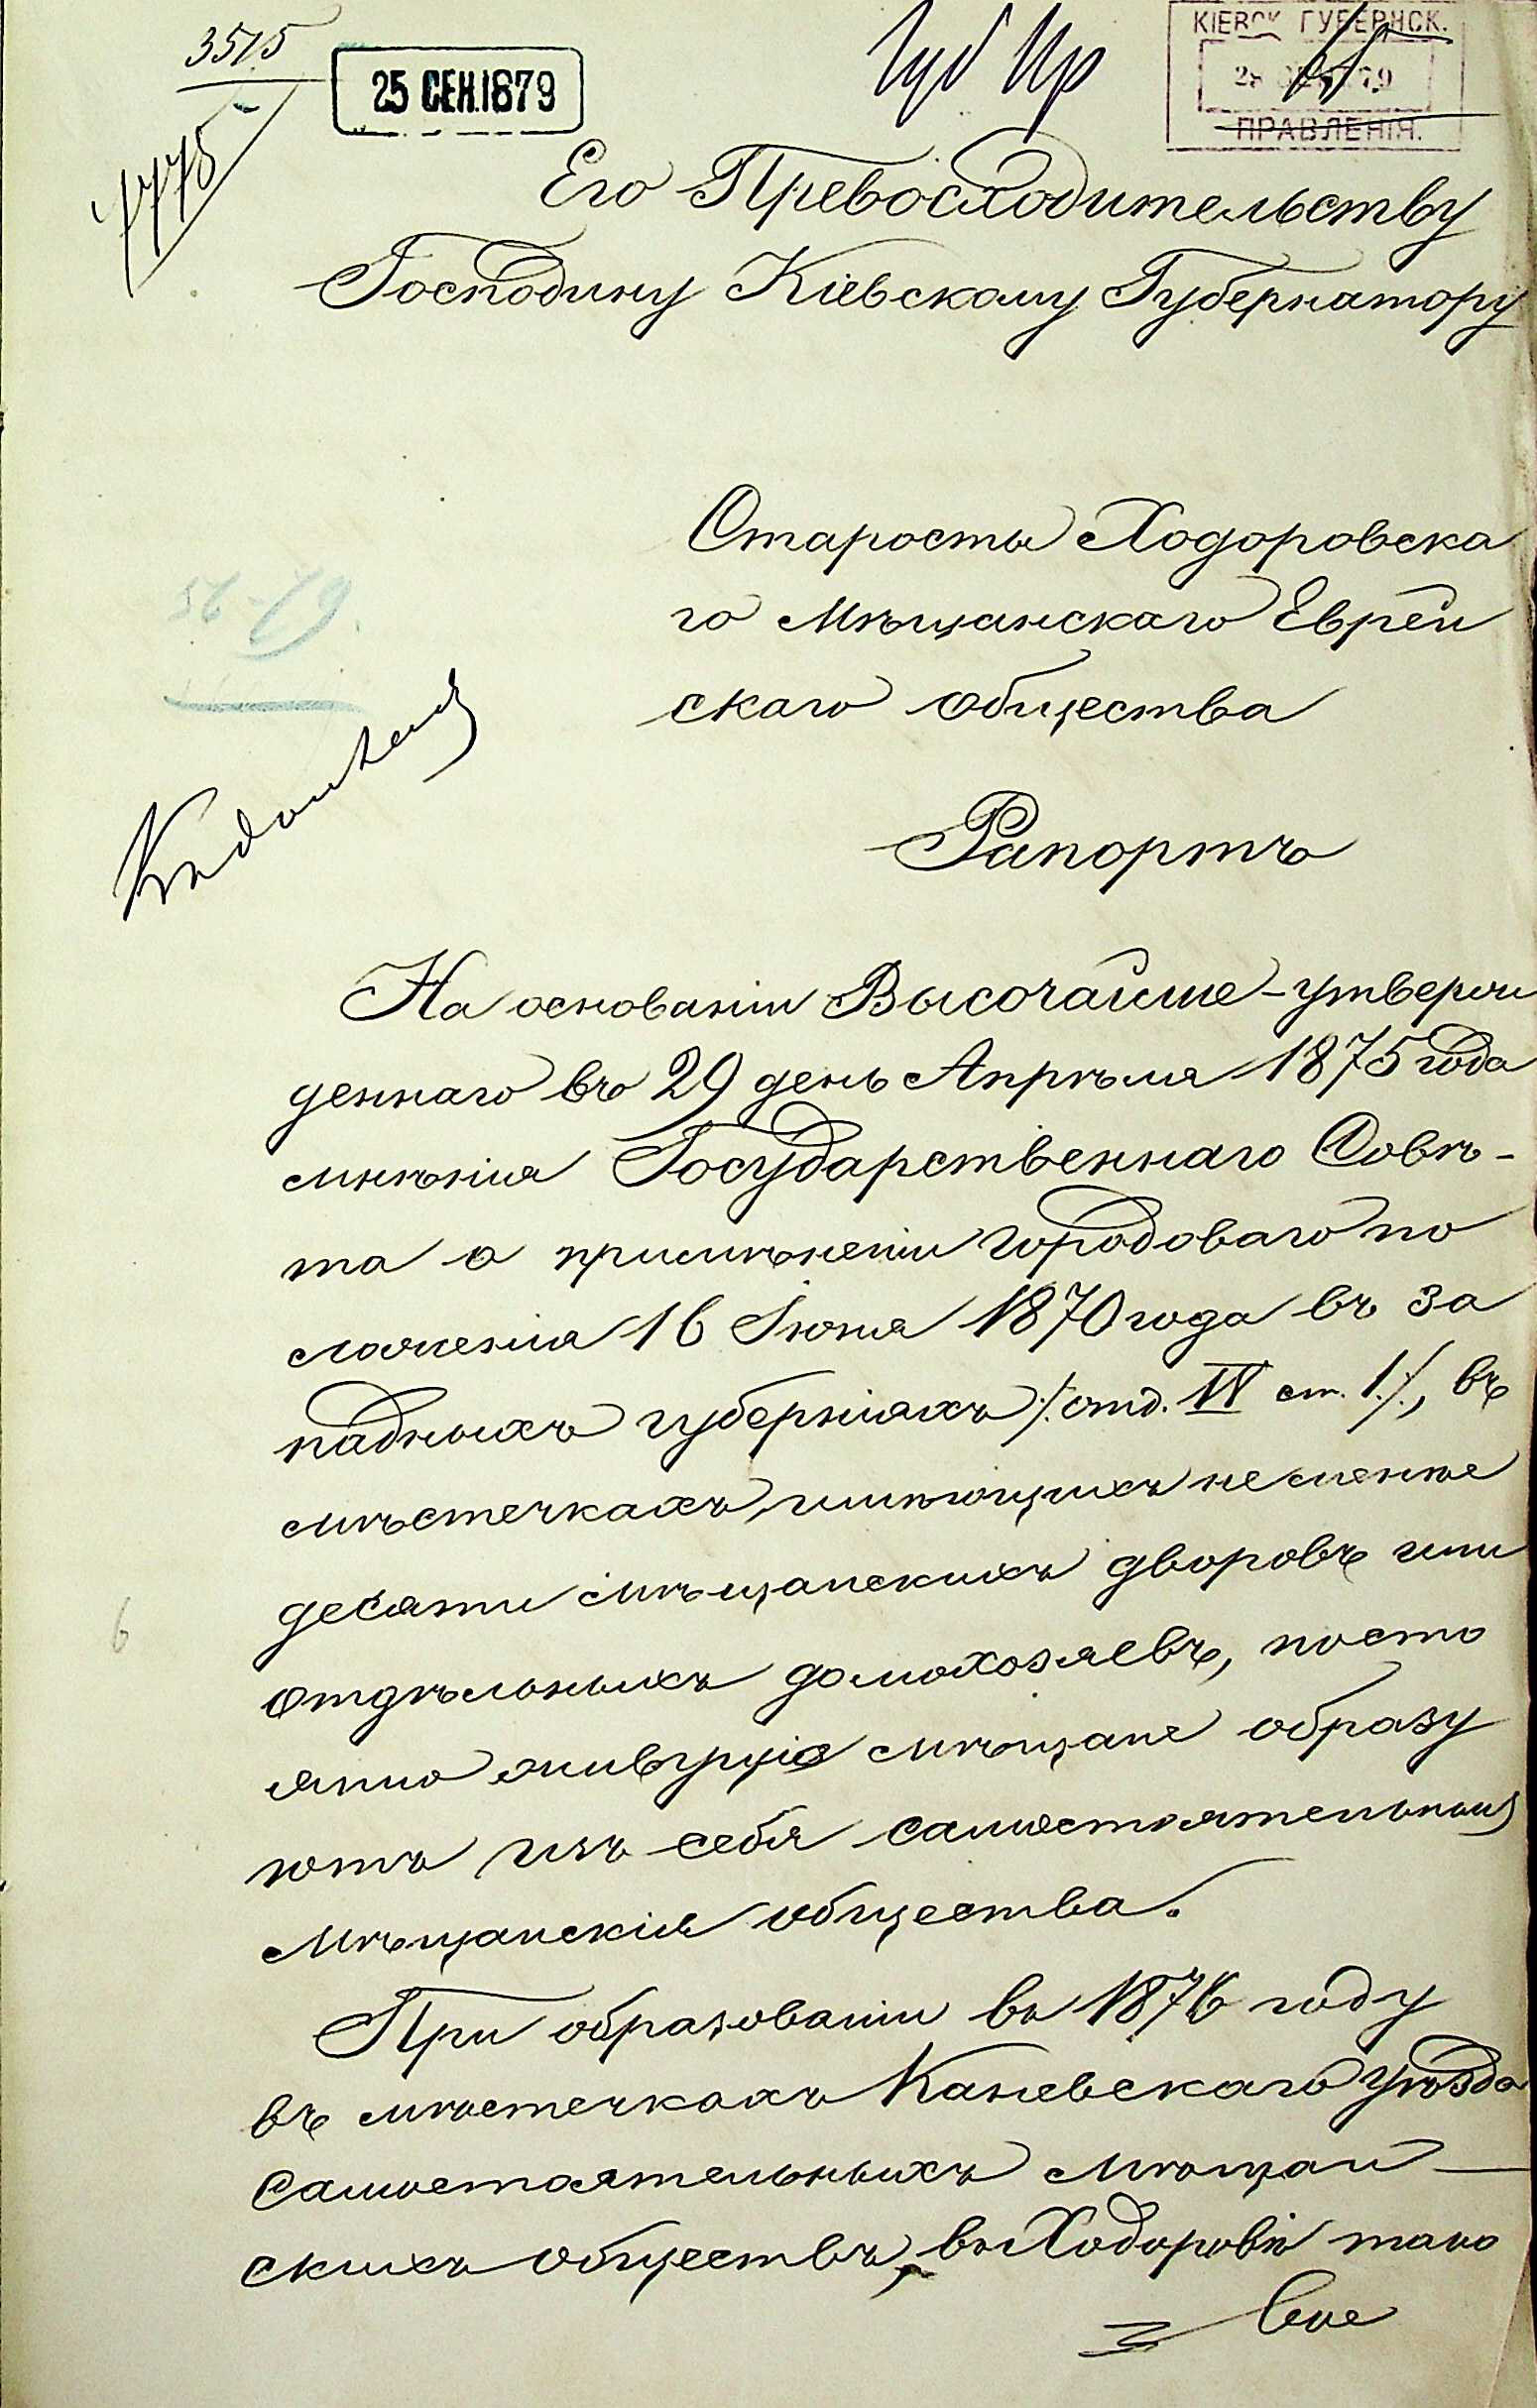 3515
25 СЕН.1879
Губ Пр
КІЕВСК. ГУБЕРНСК.
ПРАВЛЕНІЯ.
Его Превосходительству
Господину Кіевскому Губернатору
Старосты Ходоровска
го Мѣщанскаго Еврей
скаго общества
Рапортъ
На основаніи Высочайше-утверж
деннаго въ 29 день Апрѣля 1875 года
мнѣнія Государственнаго Совѣ-
та о примѣненіи городоваго по
ложенія 16 Іюня 1870 года въ за
падныхъ губерніяхъ /:отд. IV ст. 1:/, въ
мѣстечкахъ, имѣющихъ не менѣе
десяти мѣщанскихъ дворовъ или
отдѣльныхъ домохозяевъ, посто
янно живущіе мѣщане образу
ютъ изъ себя самостоятельныя
мѣщанскія общества.
При образованіи въ 1876 году
въ мѣстечкахъ Каневскаго уѣзда
самостоятельныхъ мѣщан—
скихъ обществъ, въ Ходоровѣ тако
вое